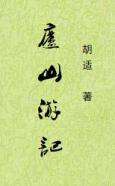 廬山游記
胡适 著